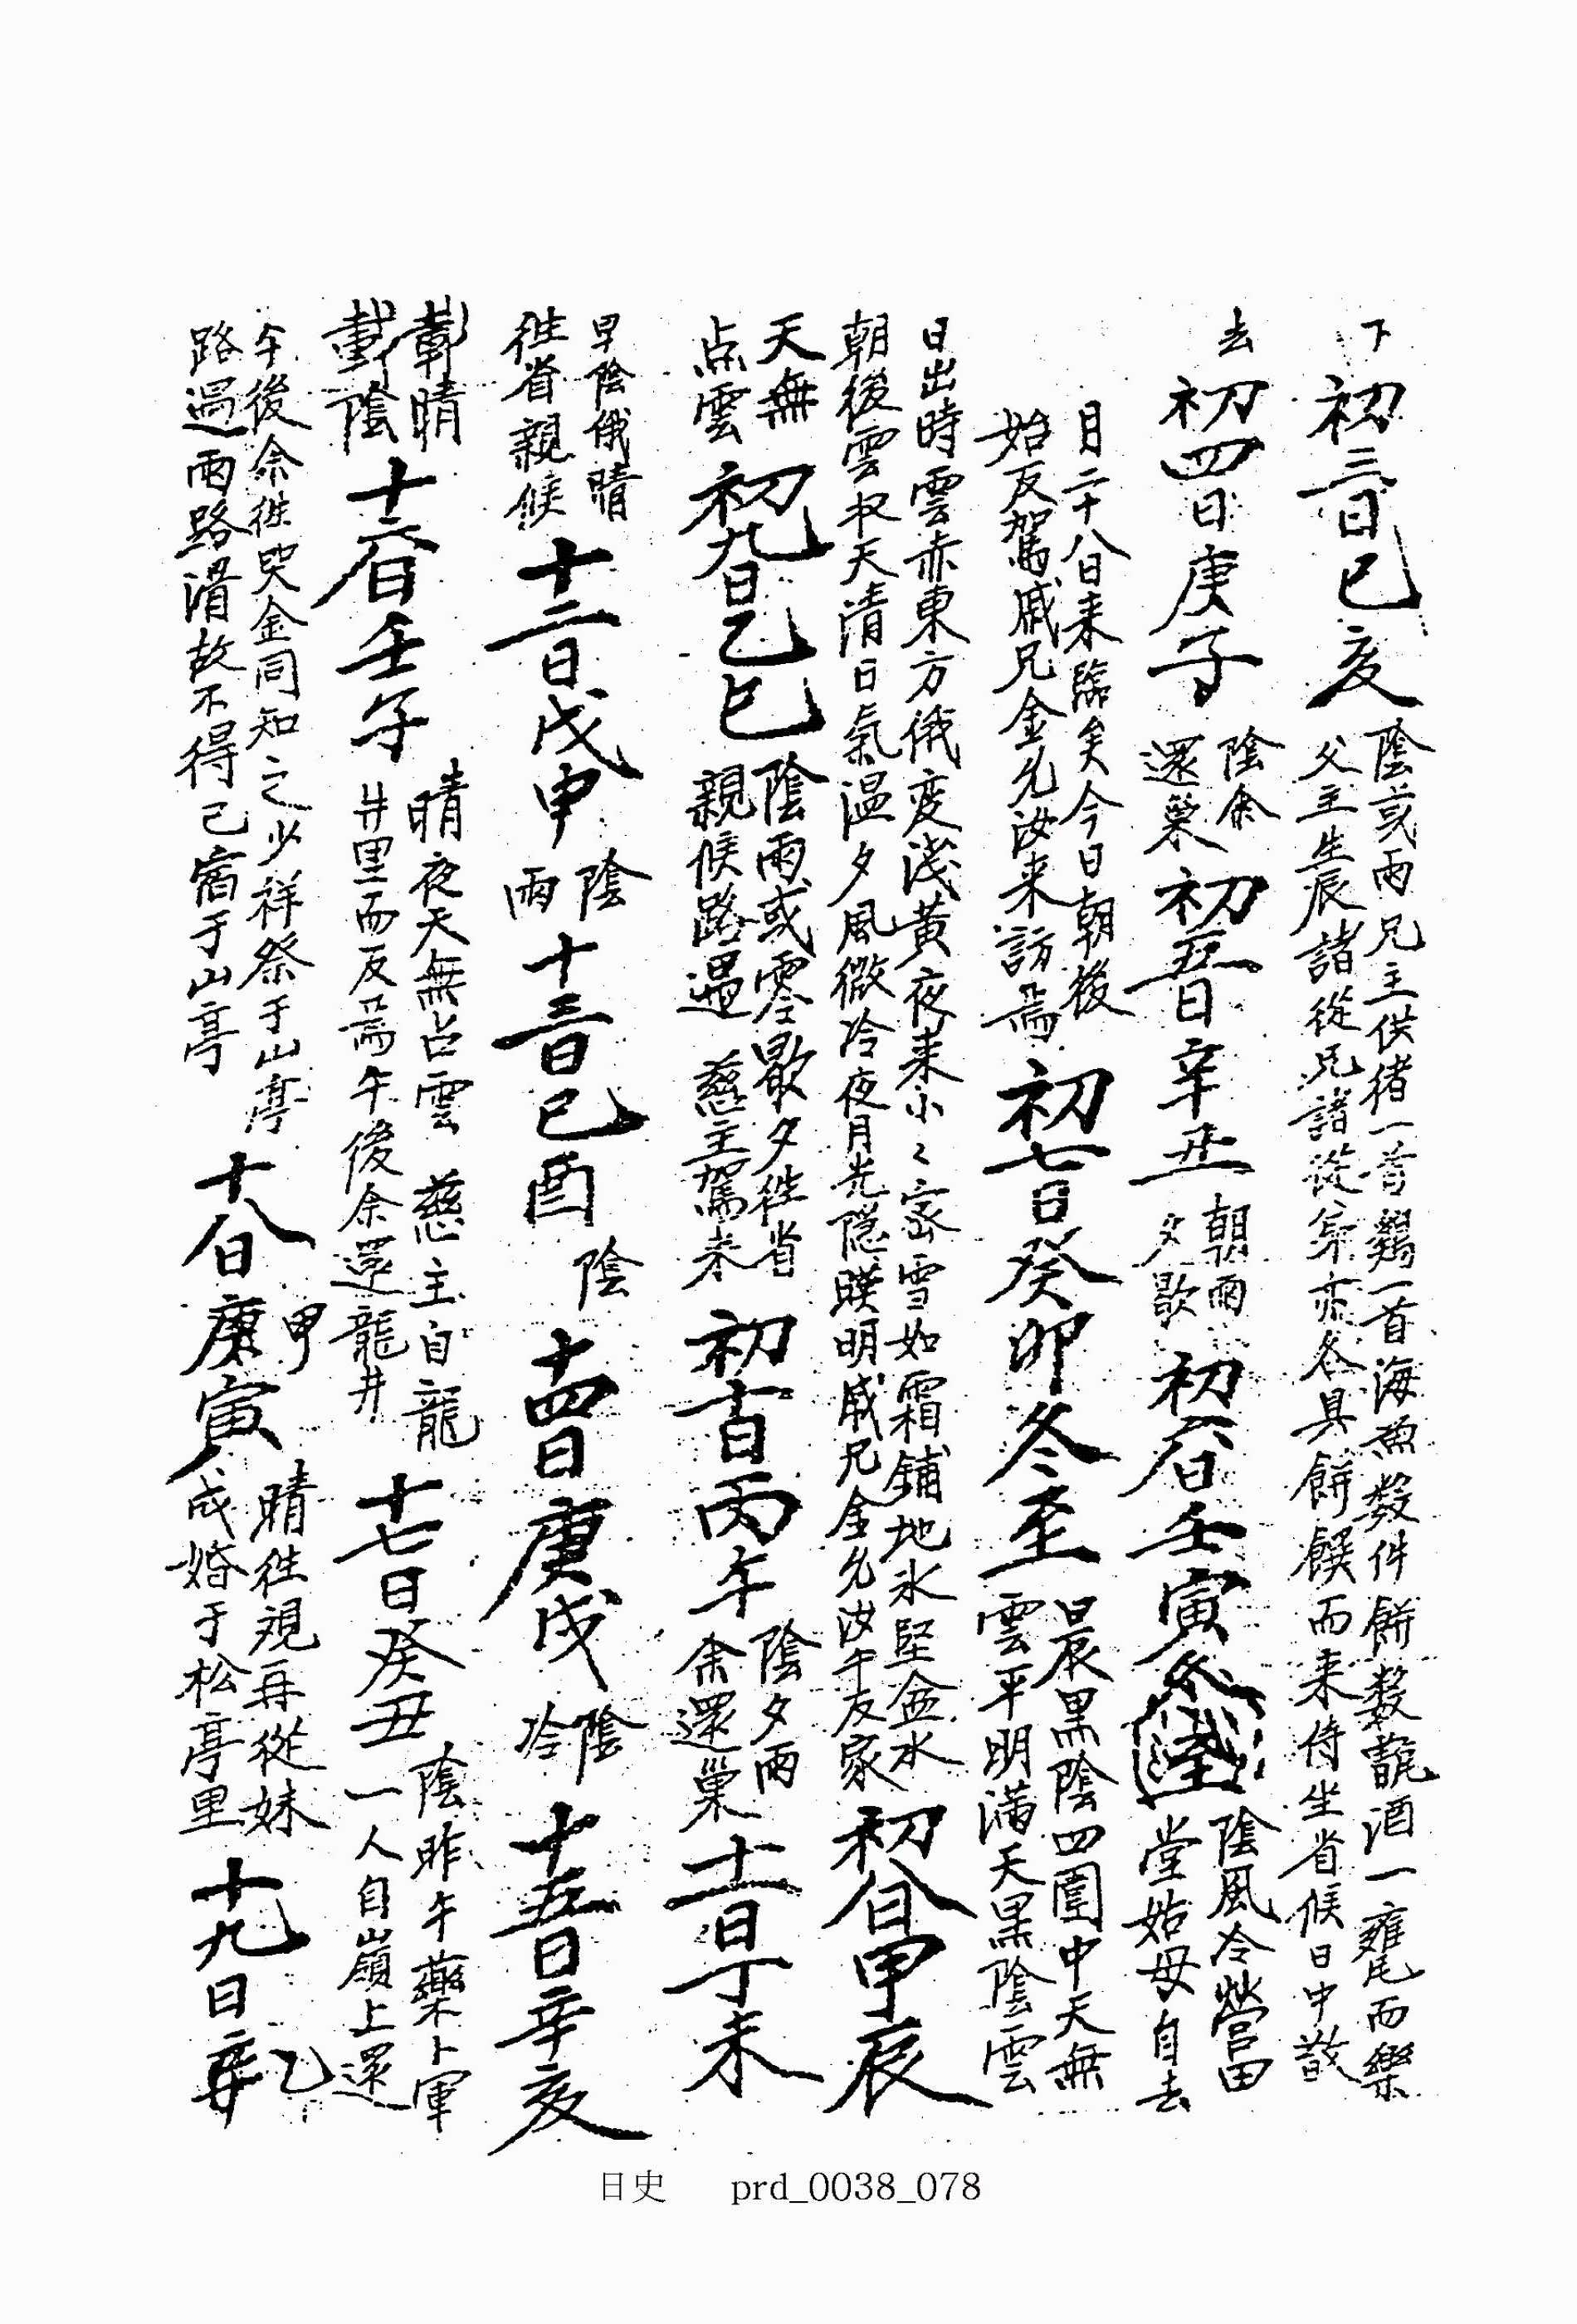 下
初三日己亥
陰或雨兄主供猪一首鷄一首海魚数件餅数甑酒一甕而樂
父主生辰諸從兄諸從弟亦各具餅饌而来侍坐省候日中散
去
初四日庚子
陰余
還巢
初五日辛丑
朝雨
夕歇
初六日壬寅
陰風冷當
堂姑母自去
月二十八日来臨矣今日朝後
始反駕戚兄金允汝来訪焉
初七日癸卯冬至
日晨黒陰四圍中天無
雲平明満天黒陰雲
日出時雲赤東方俄変浅黄夜来小〻密雪如霜鋪地氷堅盆水
朝後雲収天清日氣温夕風微冷夜月光隠暎明戚兄金允汝午反家
初八日甲辰
天無
点雲
初九日乙巳
陰雨或零歇夕徃省
親候路遇 慈主駕来
初十日丙午
陰夕雨
余還巢
十一日丁未
早陰俄晴
徃省親候
十二日戊申
陰
雨
十三日己酉
陰
十四日庚戌
陰
冷
十五日辛亥
晴
陰
十六日壬子
晴夜天無占雲 慈主自龍
井里而反焉午後余還龍井
十七日癸丑
陰昨午藥卜軍
一人自嶺上還
午後余徃哭金同知之少祥祭于山亭
路遇雨路滑故不得已宿于山亭
十八日庚寅
甲
晴徃視再從妹
成婚于松亭里
十九日
乙
日史 prd_0038_078